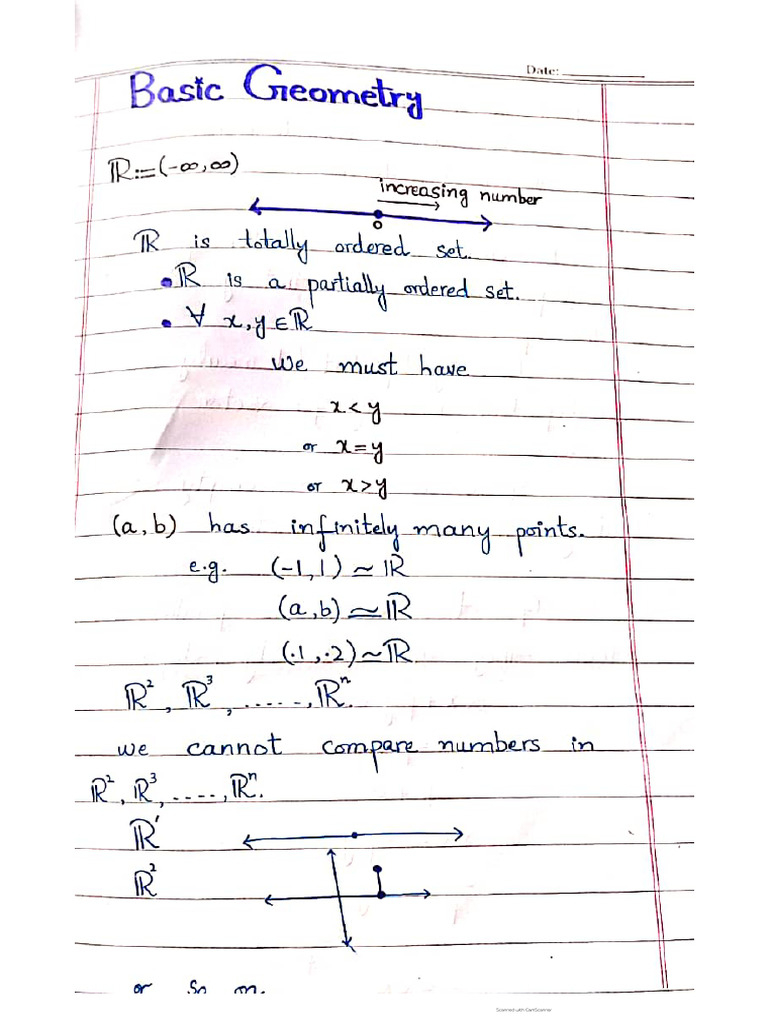 Date:
Basic Geometry
ℝ:=(-∞,∞)
increasing number
0
ℝ is totally ordered set.
• ℝ is a partially ordered set.
• ∀ x,y∈ℝ
we must have
x<y
or x=y
or x>y
(a,b) has infinitely many points.
e.g. (-1,1) ≃ ℝ
(a,b) ≃ ℝ
(.1,.2) ~ ℝ
ℝ², ℝ³, ....., ℝⁿ.
we cannot compare numbers in
ℝ², ℝ³, ....., ℝⁿ.
ℝ'
ℝ²
or so on.
Scanned with CamScanner